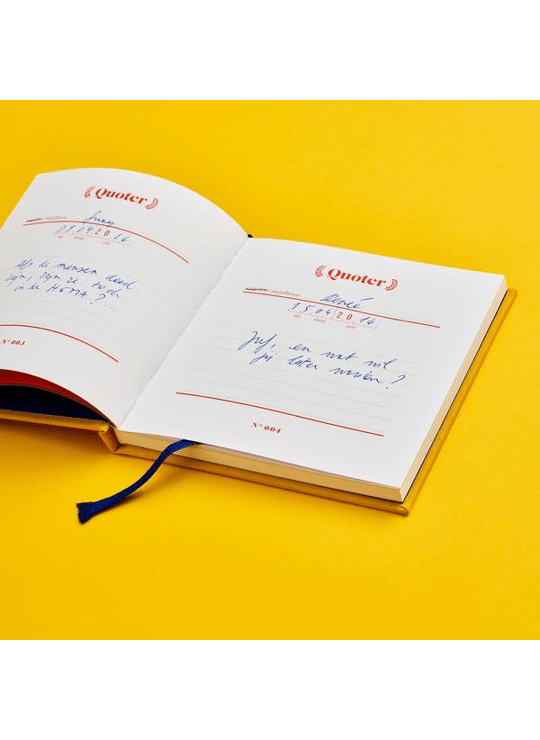 Quoter
01 04 20 16
Als de mensen dood
zijn, zijn ze toch
in de HEMA? ...
N° 003
Quoter
René
15 04 20 16
Juf, en wat wil
jij later worden?
N° 004